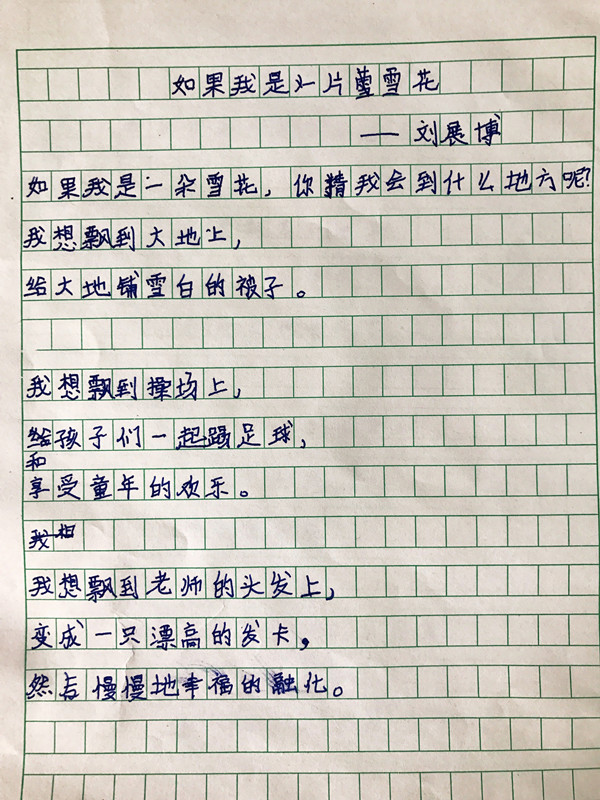 如果我是一片雪花
——刘展博
如果我是一朵雪花，你猜我会到什么地方呢？
我想飘到大地上，
给大地铺雪白的被子。
我想飘到操场上，
给孩子们一起踢足球，
和
享受童年的欢乐。
我想
我想飘到老师的头发上，
变成一只漂高的发卡，
然后慢慢地幸福的融化。